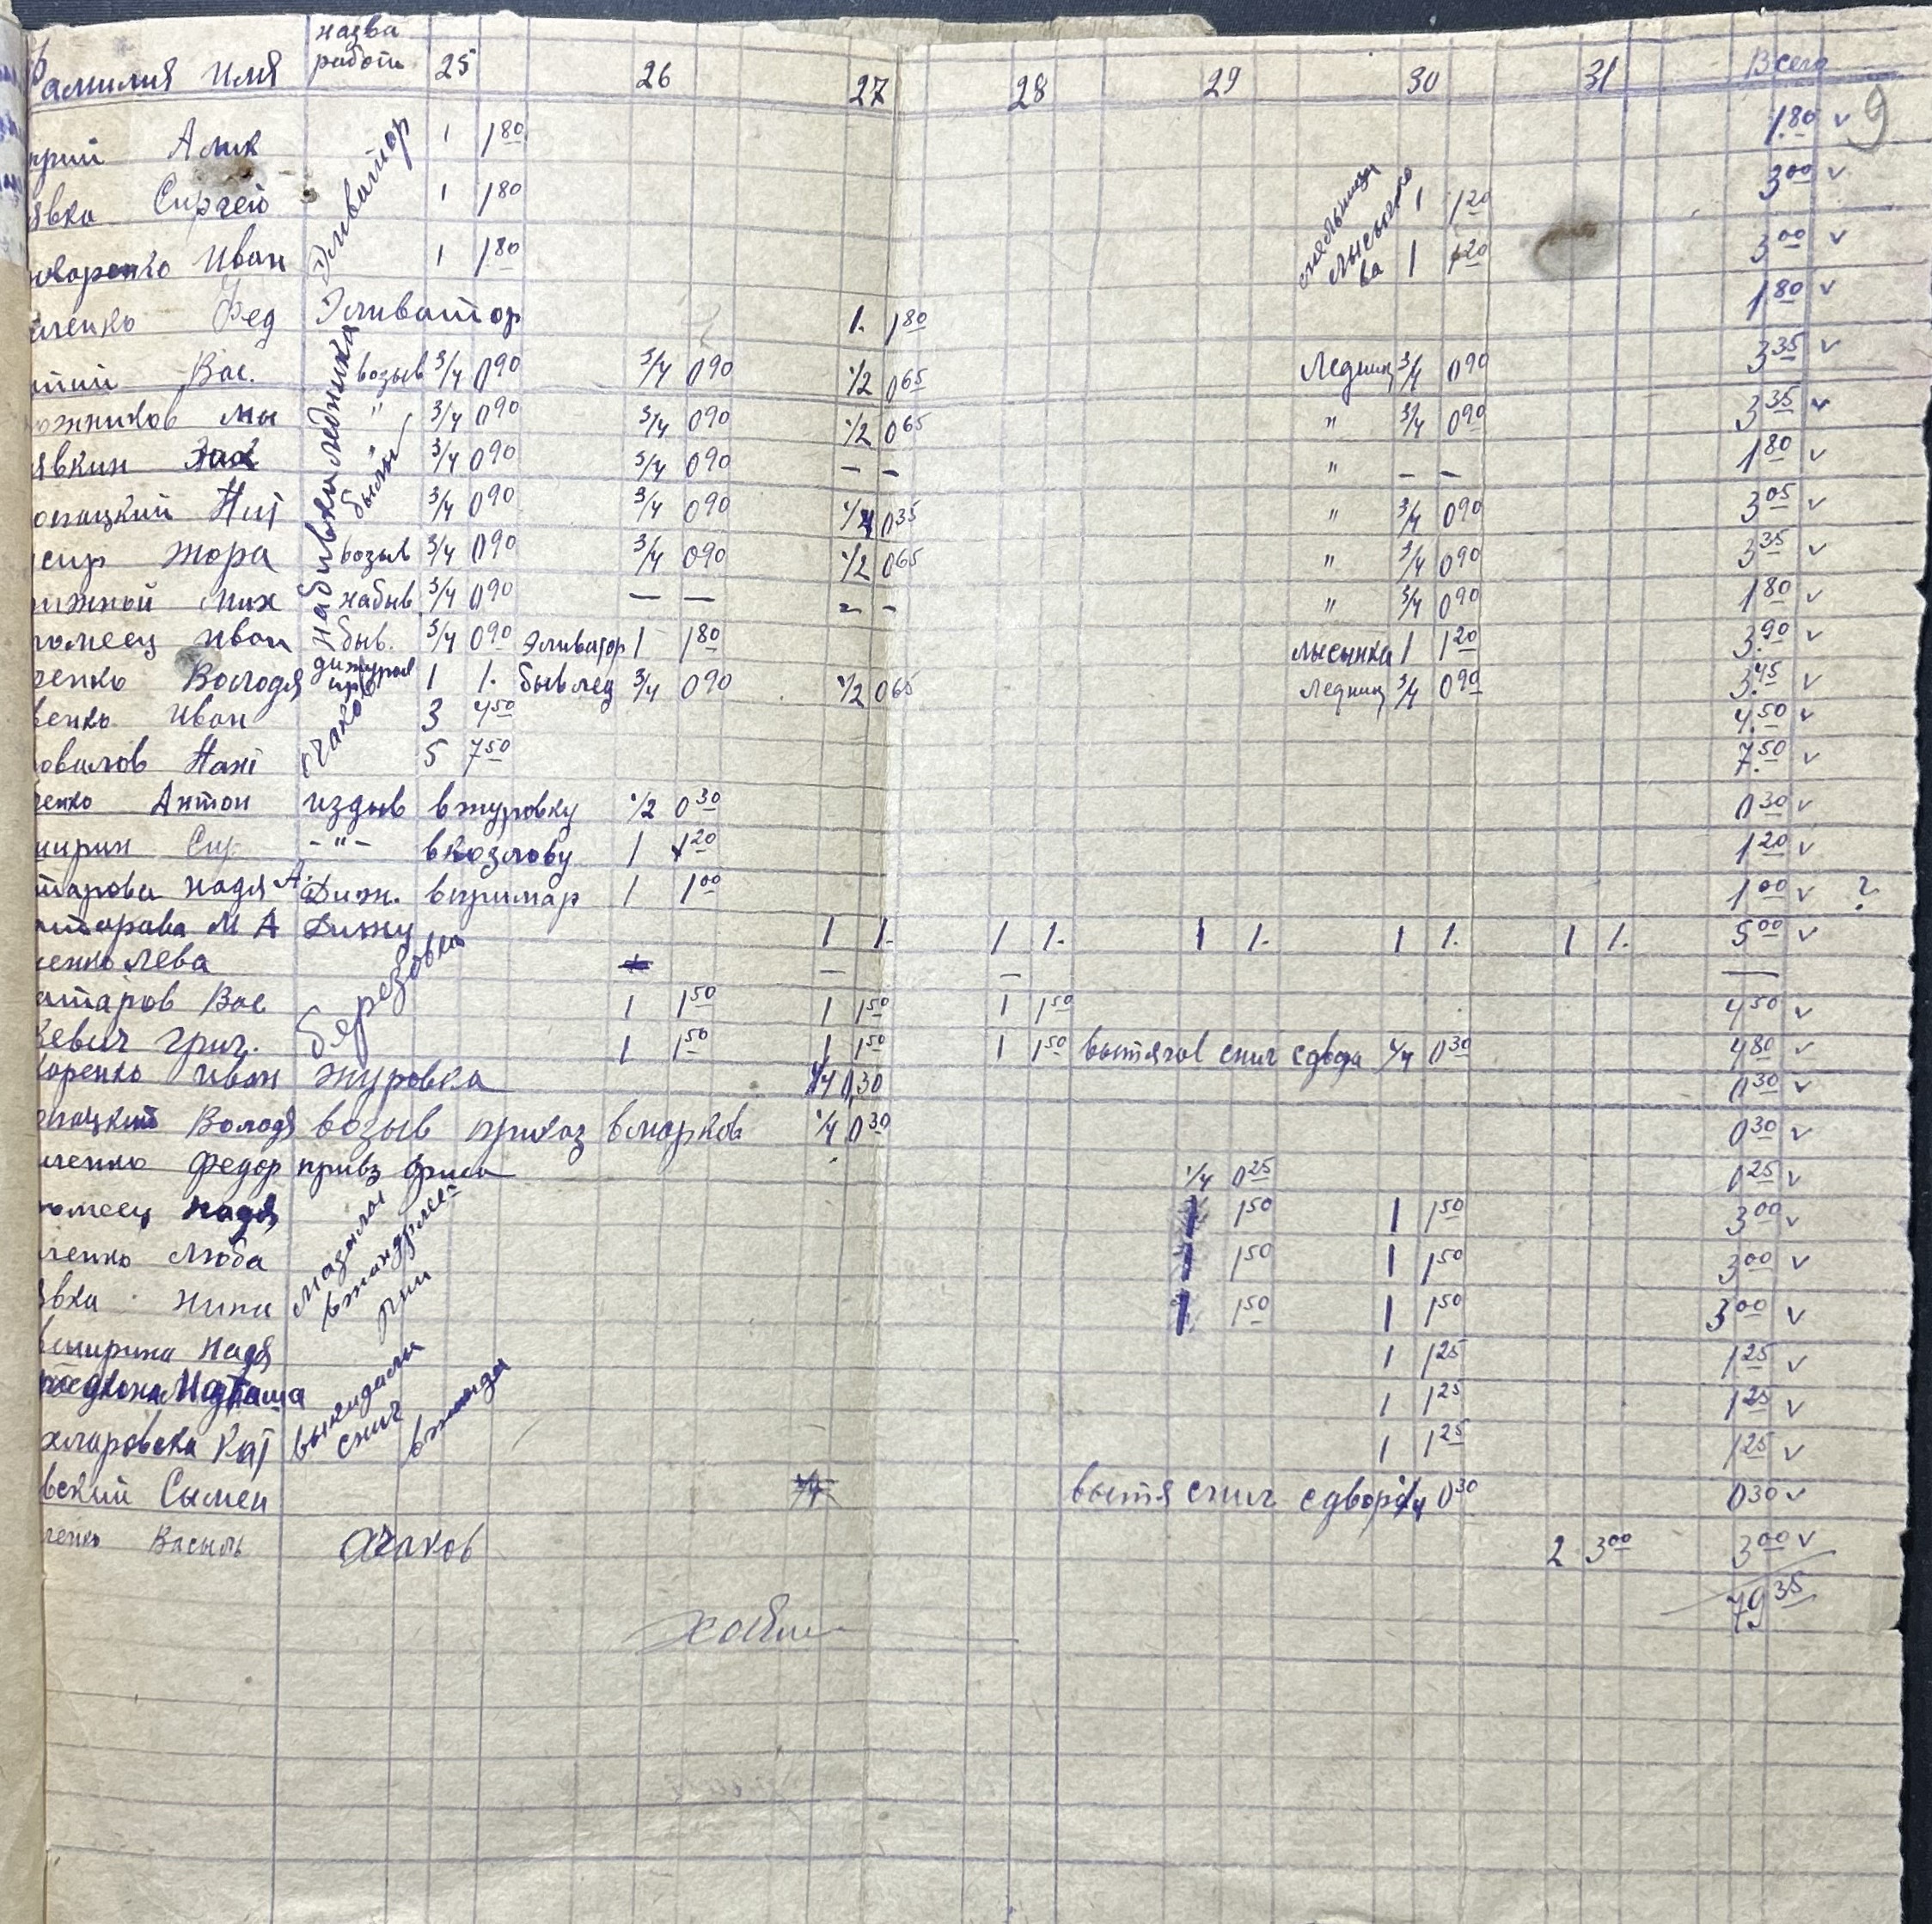 амилия Имя назва работи 25 26 27 28 29 30 31 Всего
9
Алик Эливатор 1 1 80 1.80 v
явка Сиргей 1 1 80 1 1 20 3 00 v
Иван 1 1 80 1 1 20 3 00 v
ленко Фед Эливатор 1. 1 80 1 80 v
Вас. набивка ледника возыв 3/4 0 90 3/4 0 90 1/2 0 65 Ледниц 3/4 0 90 3 35 v
ожников Мы " 3/4 0 90 3/4 0 90 1/2 0 65 " 3/4 0 90 3 35 v
явкин " 3/4 0 90 3/4 0 90 — — " — — 1 80 v
опацкий 3/4 0 90 3/4 0 90 1/4 0 35 " 3/4 0 90 3 05 v
сир Жора возыв 3/4 0 90 3/4 0 90 1/2 0 65 " 3/4 0 90 3 35 v
ижной Мих набыв 3/4 0 90 — — — — " 3/4 0 90 1 80 v
омеец Иван быв. 3/4 0 90 Эливатор 1 1 80 лысинка 1 1 20 3.90 v
ченко Володя 1 1. быв лед 3/4 0 90 1/2 0 65 Ледниц 3/4 0 90 3.45 v
венко Иван 3 4 50 4.50 v
овалов 5 7 50 7.50 v
ченко Антон издыв вжуровку 1/2 0 30 0 30 v
ширин Сир - " - вкозлову 1 1 20 1 20 v
тарова Надя А. Диж. 1 1 00 1 00 v ?
тарава М А Дижу 1 1. 1 1. 1 1. 1 1. 1 1. 5 00 v
енко Лева — — —
атаров Вас березовка 1 1 50 1 1 50 1 1 50 4 50 v
кевич Григ. 1 1 50 1 1 50 1 1 50 вытягав сниг сдвора 1/4 0 30 4 80 v
каренко Иван журовка 1/4 0,30 0 30 v
опацкий Володя возыв приказ вмарков 1/4 0 30 0 30 v
ченко Федор привз 1/4 0 25 0 25 v
омеец Надя мазалы 1 1 50 1 1 50 3 00 v
ченко Люба 1 1 50 1 1 50 3 00 v
явка Нина 1 1 50 1 1 50 3 00 v
ширина Надя 1 1 25 1 25 v
Наташа выкидалы сниг 1 1 25 1 25 v
Кат 1 1 25 1 25 v
вский Сымен вытя сниг сдвора 1/4 0 30 0 30 v
ченко Васыль Очаков 2 3 00 3 00 v
79 35